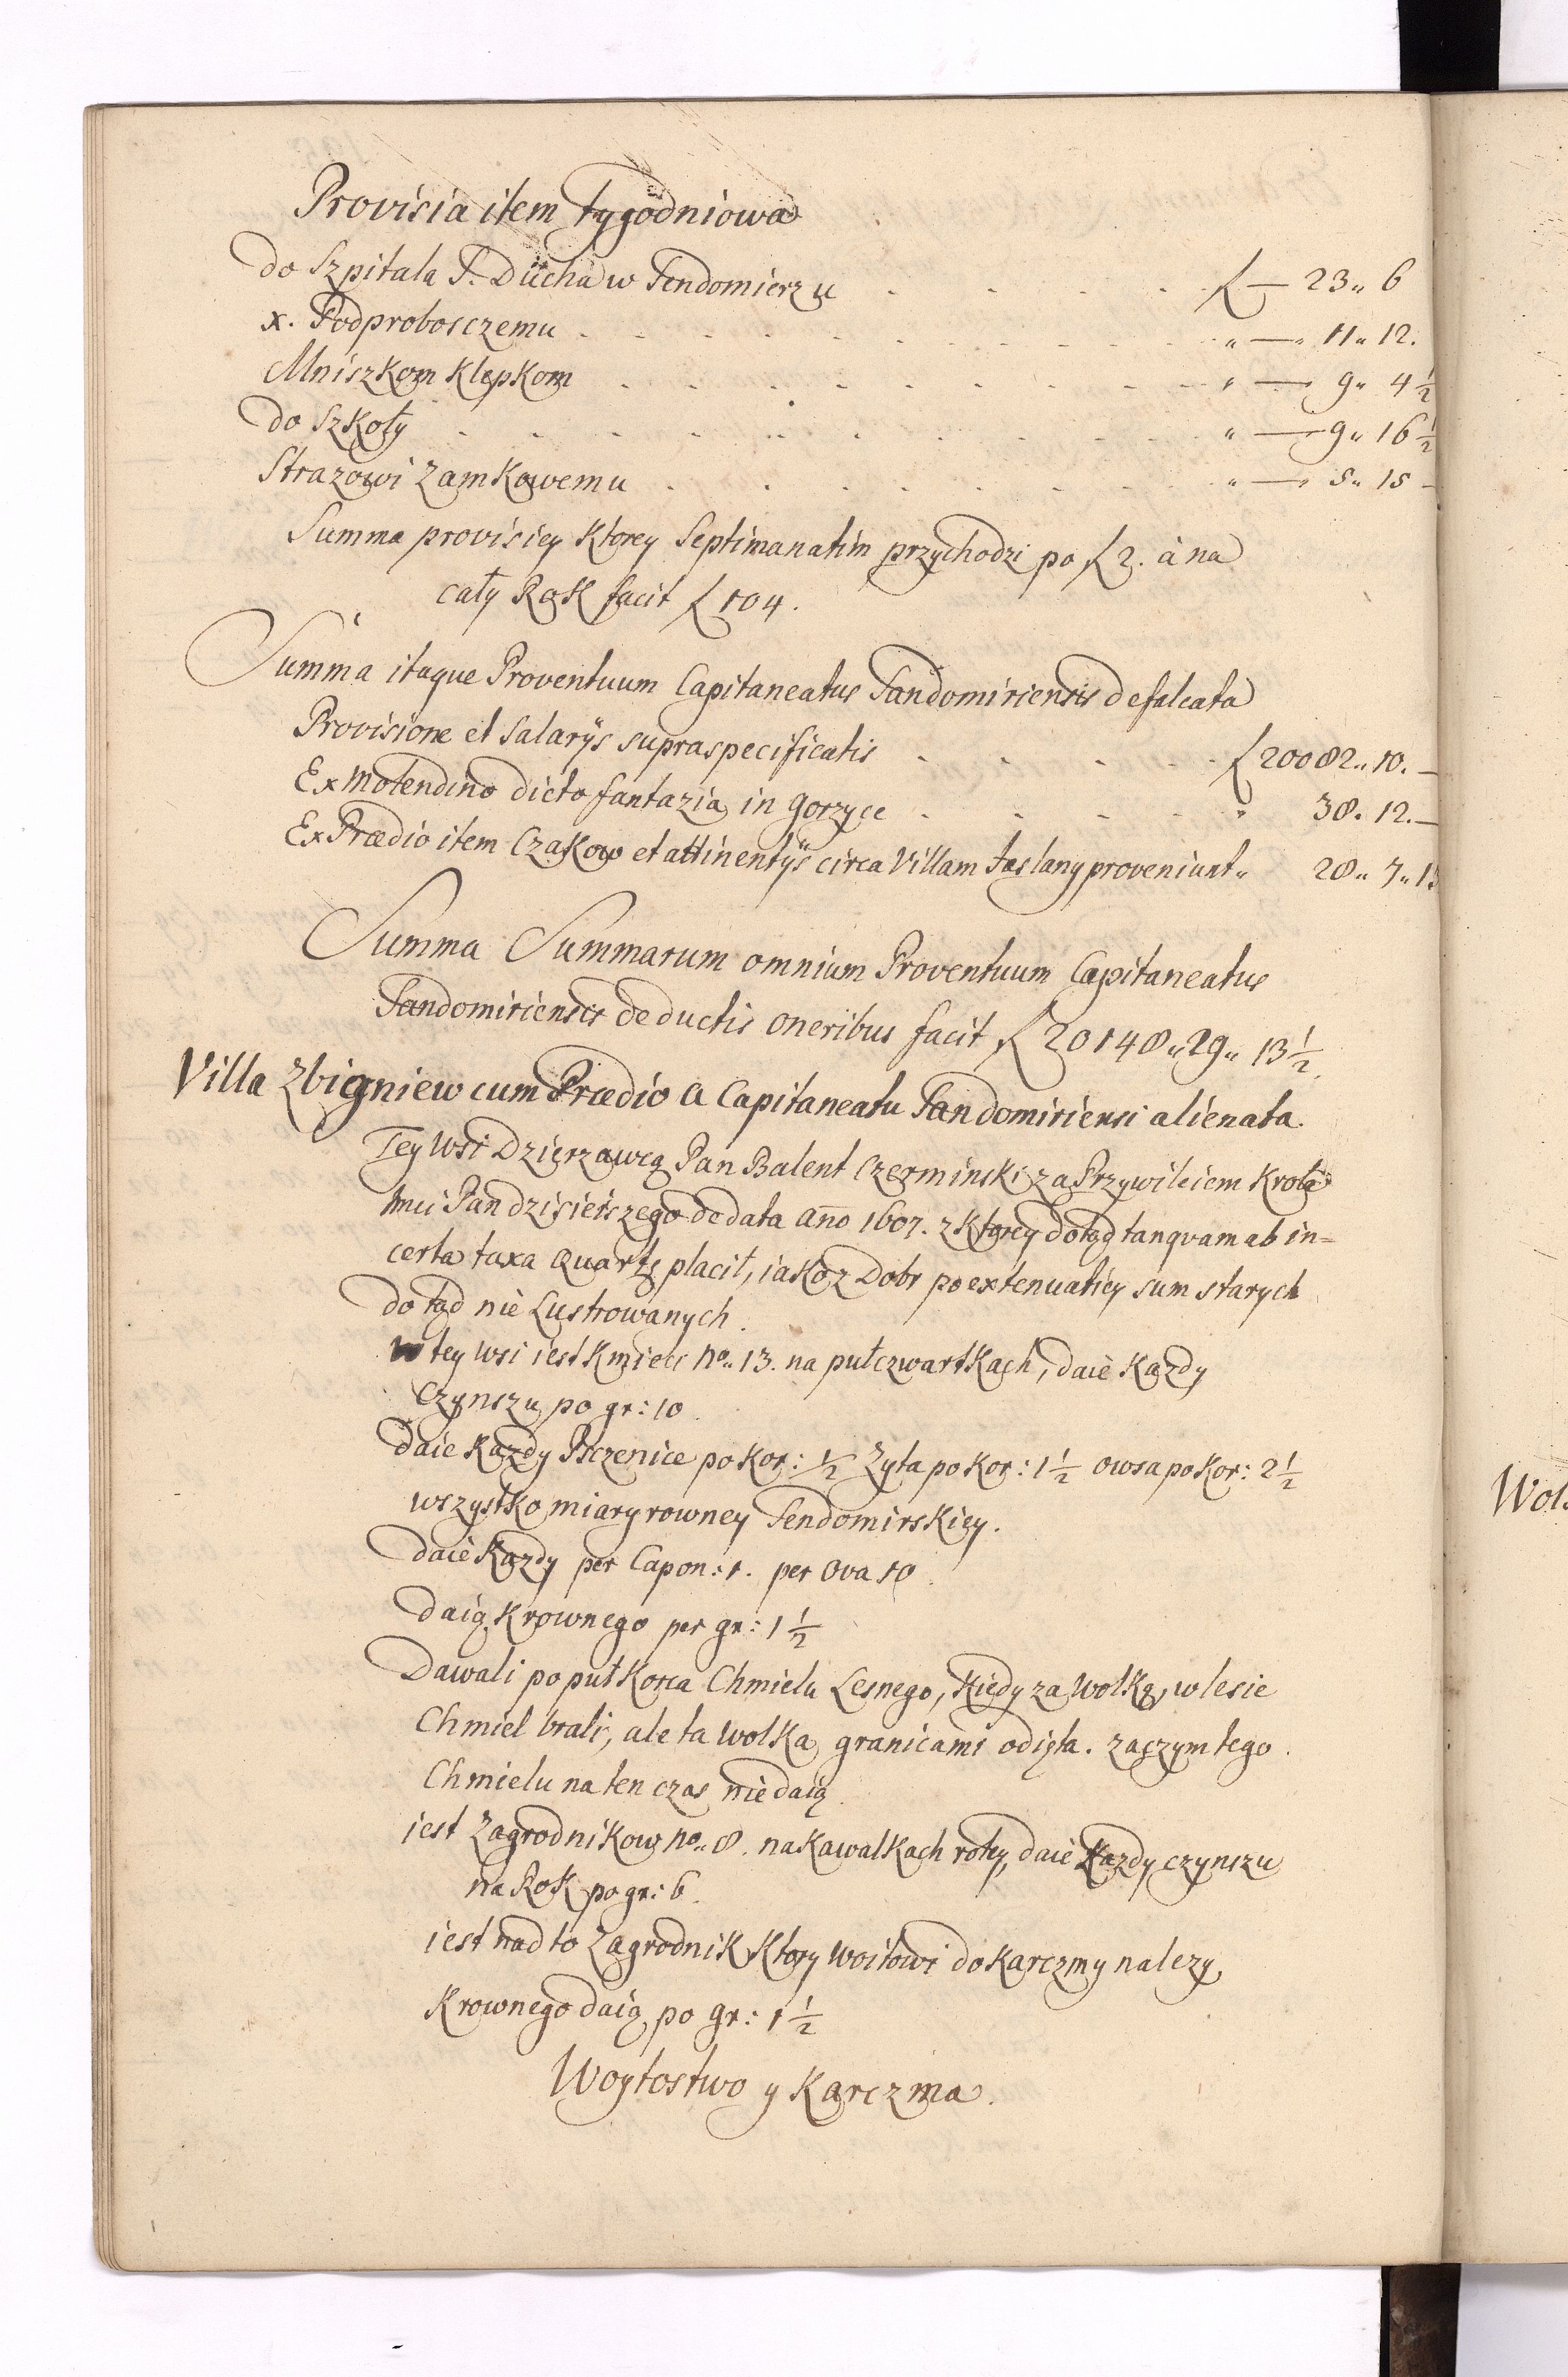 Provisia item tygodniowa
do Szpitala S. Ducha w Sendomierzu . . . . . f — 23 „ 6
x. Podproboszczemu . . . . . . . . . „ — 11 „ 12.
Mniszkom Klepkom . . . . . . . . „ — 9 „ 4 ½
do Szkoły . . . . . . . . . „ — 9 „ 16 ½
Strazowi Zamkowemu . . . . . . . „ — 5 „ 15 —
Summa provisiey ktorey Septimanatim przychodzi po f 2. à na
cały Rok facit f 104.
Summa itaque Proventuum Capitaneatus Sandomiriensis defalcata
Provisione et Salarÿs supraspecificatis . . . . f 20082 „ 10. —
Ex Molendino dicto fantazia in Gorzyce . . . . . „ 38. 12. —
Ex Prædio item Czakow et attinentÿs circa Villam Jaslany proveniunt „ 28 „ 7 „
Summa Summarum omnium Proventuum Capitaneatus
Sandomiriensis deductis oneribus facit f 20148 „ 29 „ 13 ½.
Villa Zbigniew cum Prædio a Capitaneatu Sandomiriensi alienata.
Tey wsi Dzierzawcą Pan Balent Czerminski za Przywileiem Krola
Jmci Pan dzisieiszego de data año 1607. z ktorey dotąd tanqvam ab in=
certa taxa Quartę placił, iako z Dobr po extenuatiey sum starych
dotąd nie Lustrowanych.
w tey wsi iest Kmieci No. 13. na pułczwartkach, daie kazdy
Czynszu po gr: 10.
daie kazdy Psczenice po kor: ½ Zyta po kor: 1 ½ owsa po kor: 2 ½
wszystko miary rowney Sendomirskiey.
daie kazdy per Capon: 1. per Ova 10.
daią krownego per gr: 1 ½
Dawali po puł korca Chmielu Lesnego, kiedy za Wolką, w lesie
Chmiel brali, ale ta wolka granicami odięta. zaczym tego
Chmielu na ten czas nie daią.
iest Zagrodnikow No. 8. na kawalkach roley, daie kazdy czynszu
na Rok po gr: 6.
iest nadto Zagrodnik ktory woitowi do karczmy nalezy,
Krownego daią po gr: 1 ½
Woytostwo y Karczma.